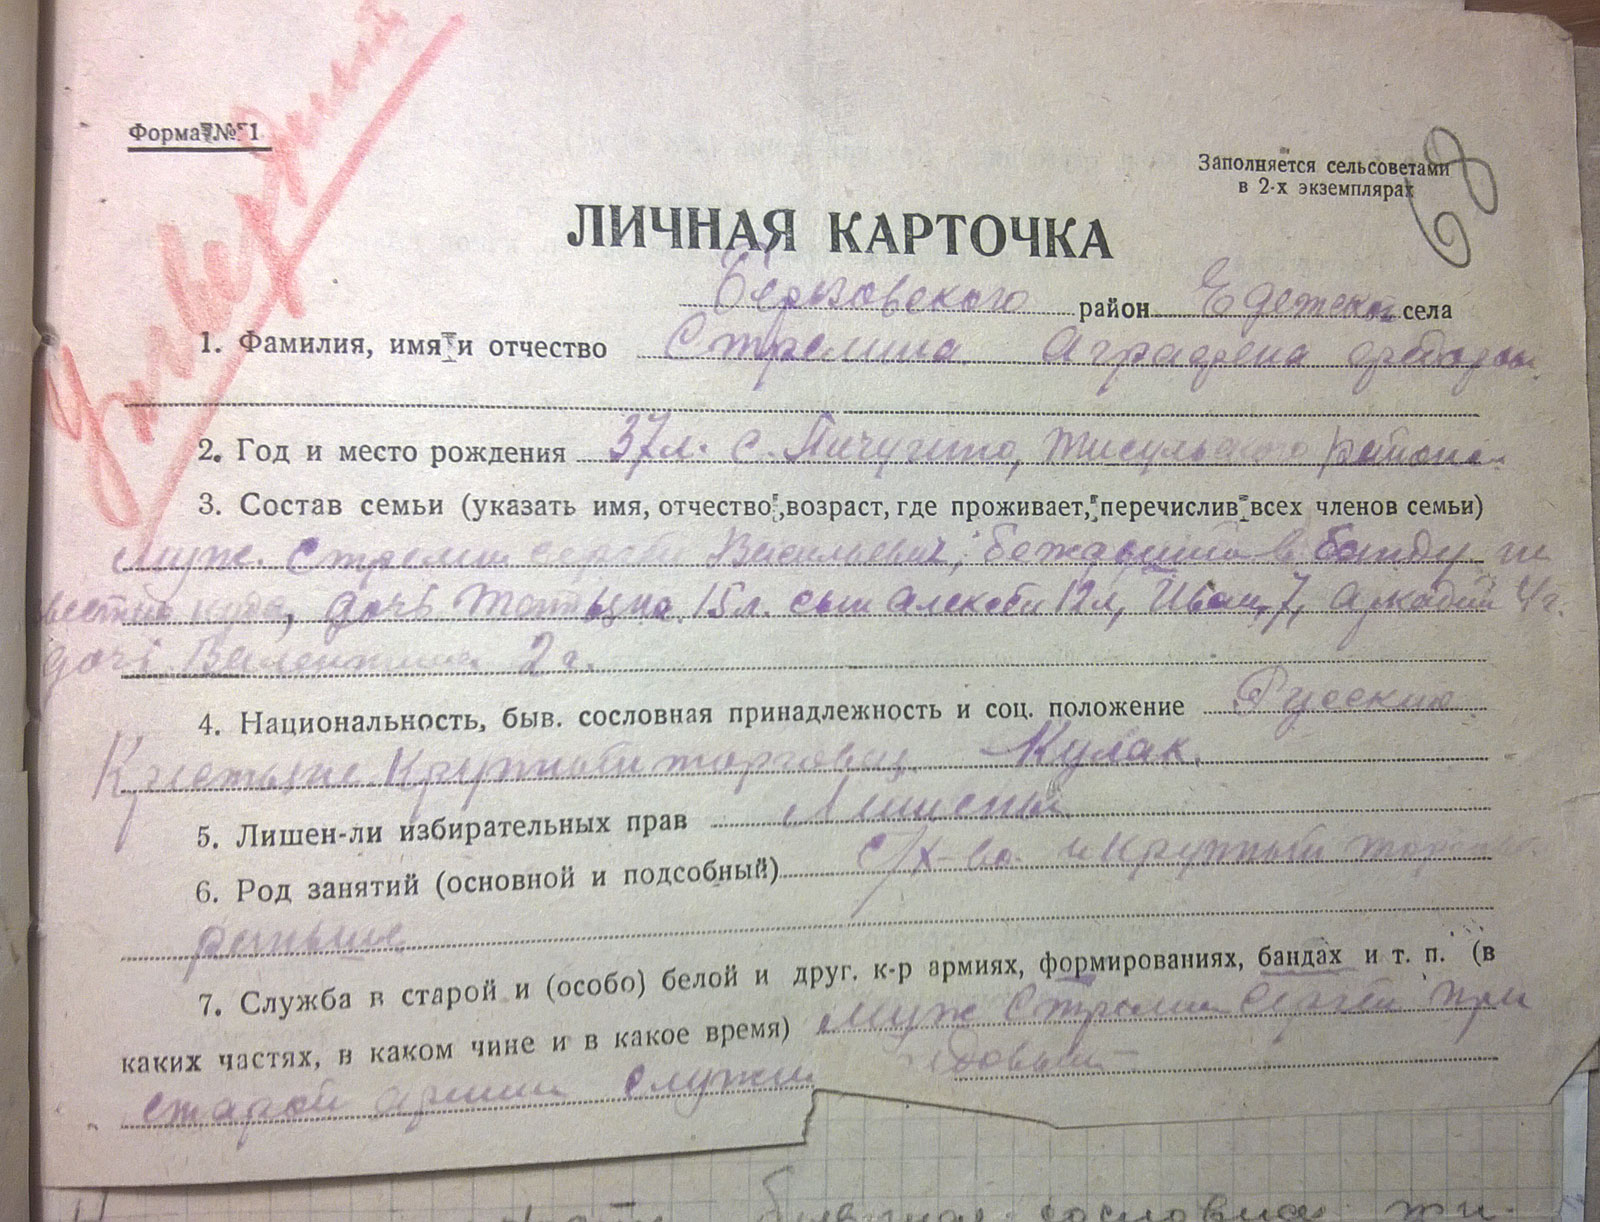 Форма № 1
68
Заполняется сельсоветами
в 2-х экземплярах
ЛИЧНАЯ КАРТОЧКА
район села
1. Фамилия, имя и отчество Аграфена
2. Год и место рождения 37 л. с. Пичугино, Тисульского района
3. Состав семьи (указать имя, отчество, возраст, где проживает, перечислив всех членов семьи)
Муж. Васильевич, в банду не
вестно куда, дочь 15 л. сын Алексей 12 л, Иван, 7, Аркадий 4 г.
дочь Валентина 2 г.
4. Национальность, быв. сословная принадлежность и соц. положение Русские
Крестьяне. Крупный торговец Кулак.
5. Лишен-ли избирательных прав
6. Род занятий (основной и подсобный) с/х-во и крупный
раньше
7. Служба в старой и (особо) белой и друг. к-р армиях, формированиях, бандах и т. п. (в
каких частях, в каком чине и в какое время) Муж Сергей при
старой армии служил